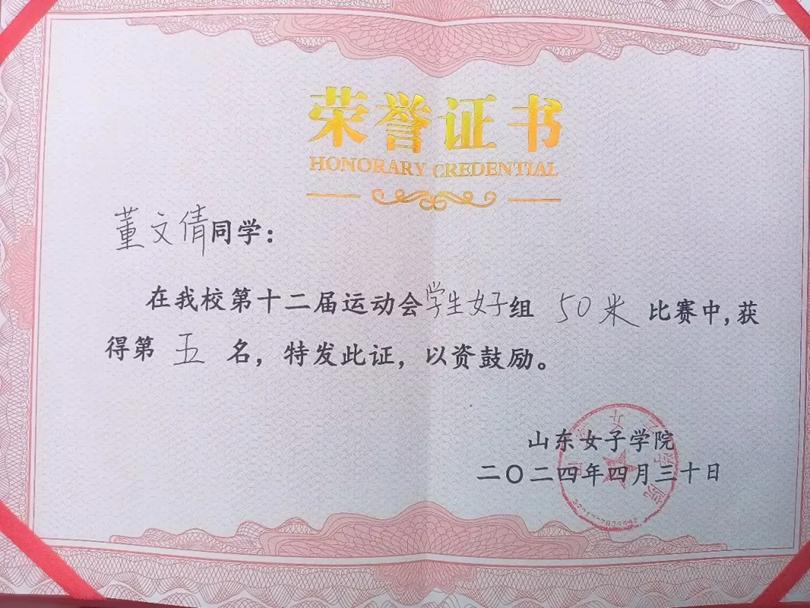 荣誉证书
HONORARY CREDENTIAL
董文倩同学：
在我校第十二届运动会学生女子组 50米 比赛中，获
得第 五 名，特发此证，以资鼓励。
山东女子学院
二〇二四年四月三十日